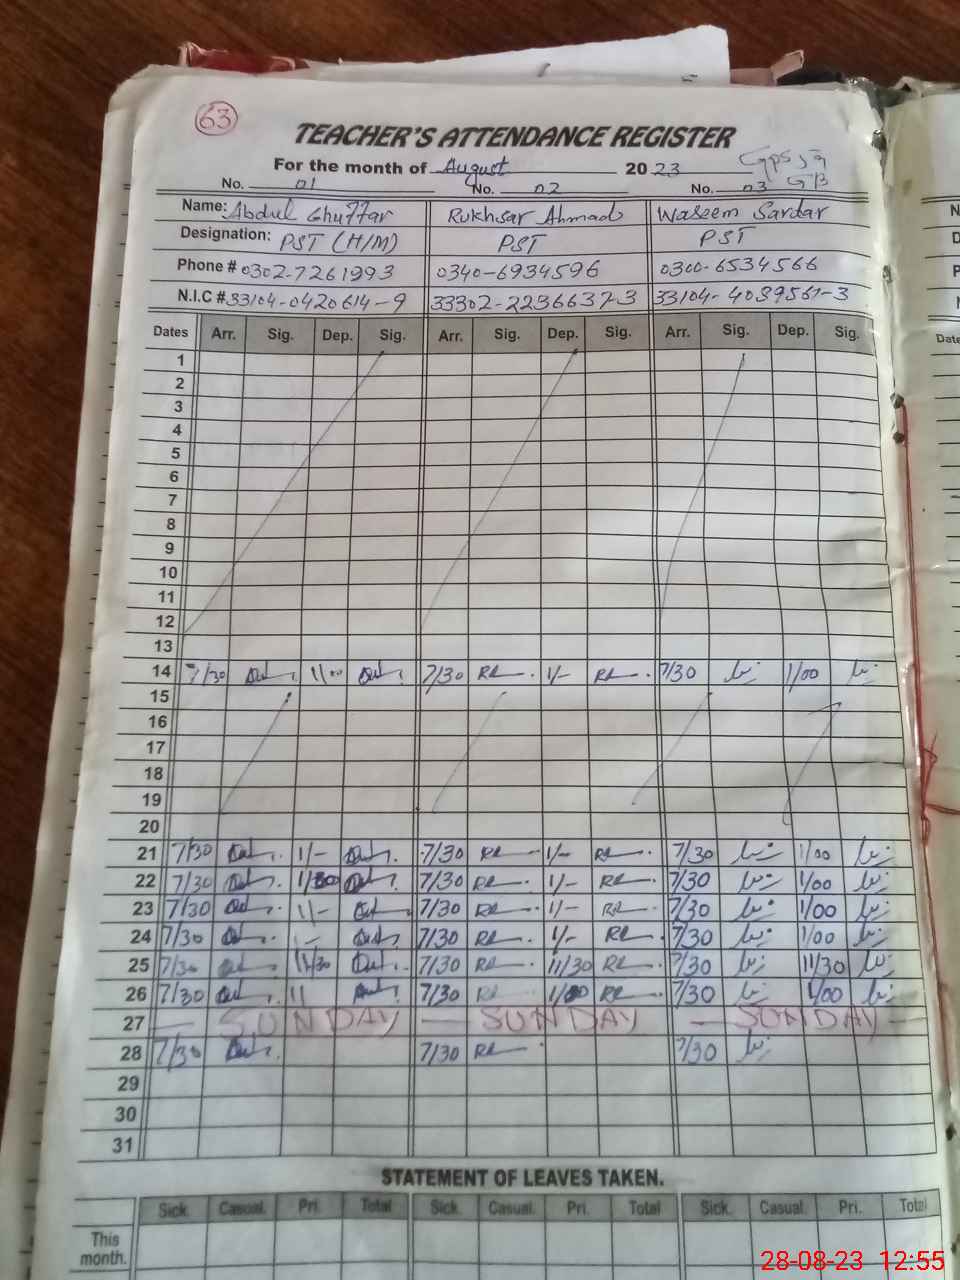 63
TEACHER'S ATTENDANCE REGISTER
For the month of August 2023
No. 01 No. 02 No. 03
Name: Abdul Ghuffar Rukhsar Ahmad Waseem Sardar
Designation: PST (H/M) PST PST
Phone # 0302-7261993 0340-6934596 0300-6534566
N.I.C # 33104-0420614-9 33302-2236637-3 33104-4039561-3
Dates Arr. Sig. Dep. Sig. Arr. Sig. Dep. Sig. Arr. Sig. Dep. Sig.
1
2
3
4
5
6
7
8
9
10
11
12
13
14 7/30 1/00 7/30 1/- 7/30 1/00
15
16
17
18
19
20
21 7/30 1/- 7/30 1/- 7/30 1/00
22 7/30 7/30 1/- 7/30 1/00
23 7/30 1/- 7/30 1/- 7/30 1/00
24 7/30 1- 7/30 1/- 7/30 1/00
25 7/30 11/30 7/30 11/30 7/30 11/30
26 7/30 7/30 1/00 7/30 1/00
27 — SUNDAY — SUNDAY — SUNDAY —
28 7/30 7/30 7/30
29
30
31
STATEMENT OF LEAVES TAKEN.
Sick. Casual. Pri. Total Sick. Casual. Pri. Total Sick. Casual. Pri. Total
This
month.
28-08-23 12:55